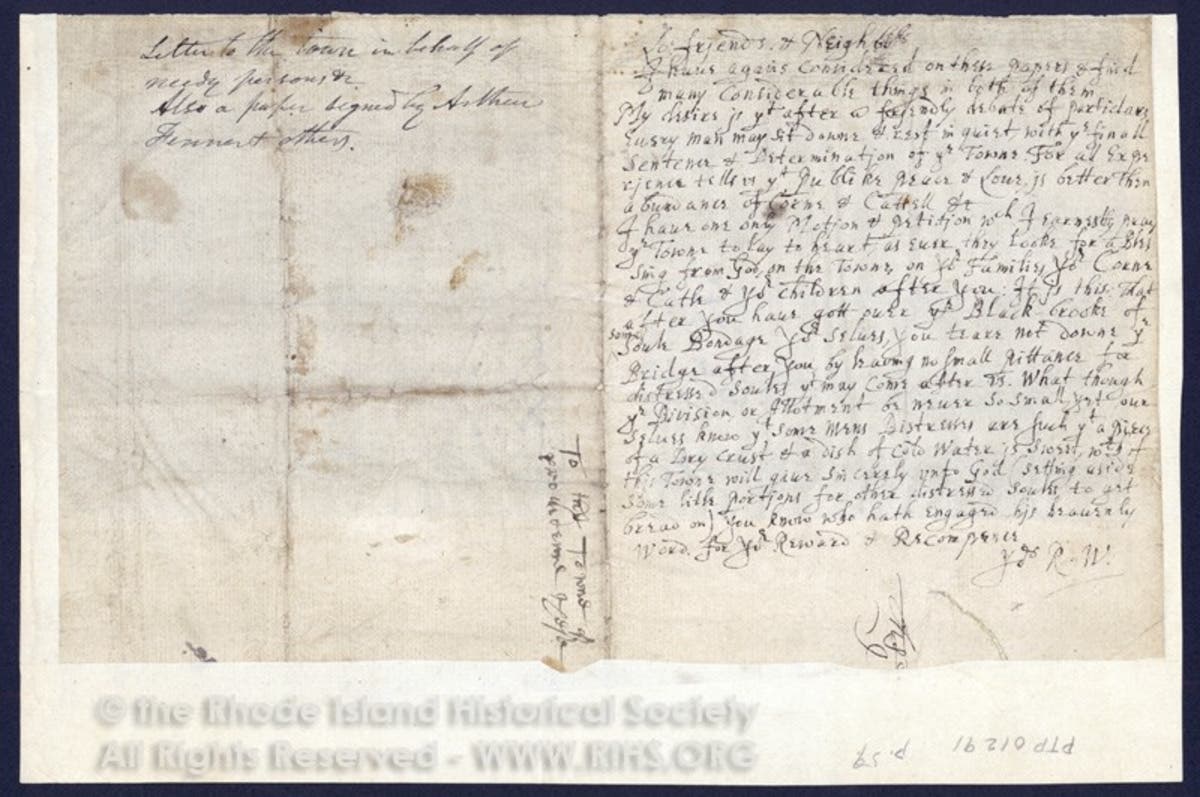 Letter to the town in behalf of
needy persons &c.
Also a paper signed by Arthur
Fenner & others.
To friends & Neighbors
I haue againe Considered on these Papers & find
many Considerable things in both of them
My desire is yt after a friendly debate of particlars
Euery man may sit downe & rest in quiet with ye finall
Sentence & Determination of ye Towne. For all Expe
rjence tells vs yt Publike peace & Loue is better then
abundance of Corne & Cattell &c
I haue one only Motjon & petitjon wch I earnestly pray
ye Towne to lay to heart, as euer they looke for a Bles
sing from God, on the Towne, on yor Families, yor Corne
& Catle & yor children after you: It is this: That
after you haue gott ouer ye Black brooke of
some
Soule Bondage yor selues, you teare not downe ye
Bridge after you, by leaving no small pittance for
distressed Soules yt may come after vs. What though
ye Division or Allotment be neuer so small, yet our
Selues know yt some mens Distresses are such yt a piece
of a Dry Crust & a dish of Cold Water is Sweet, wch if
this Towne will giue sincerely vnto God (setting aside
Some litle portions for other distressed Soules to get
bread on) you know who hath engaged his heauenly
Word for yor Reward & Recompence
yors R. W.
To the Towne of
© the Rhode Island Historical Society
All Rights Reserved - WWW.RIHS.ORG
p. 59
PTP 01291